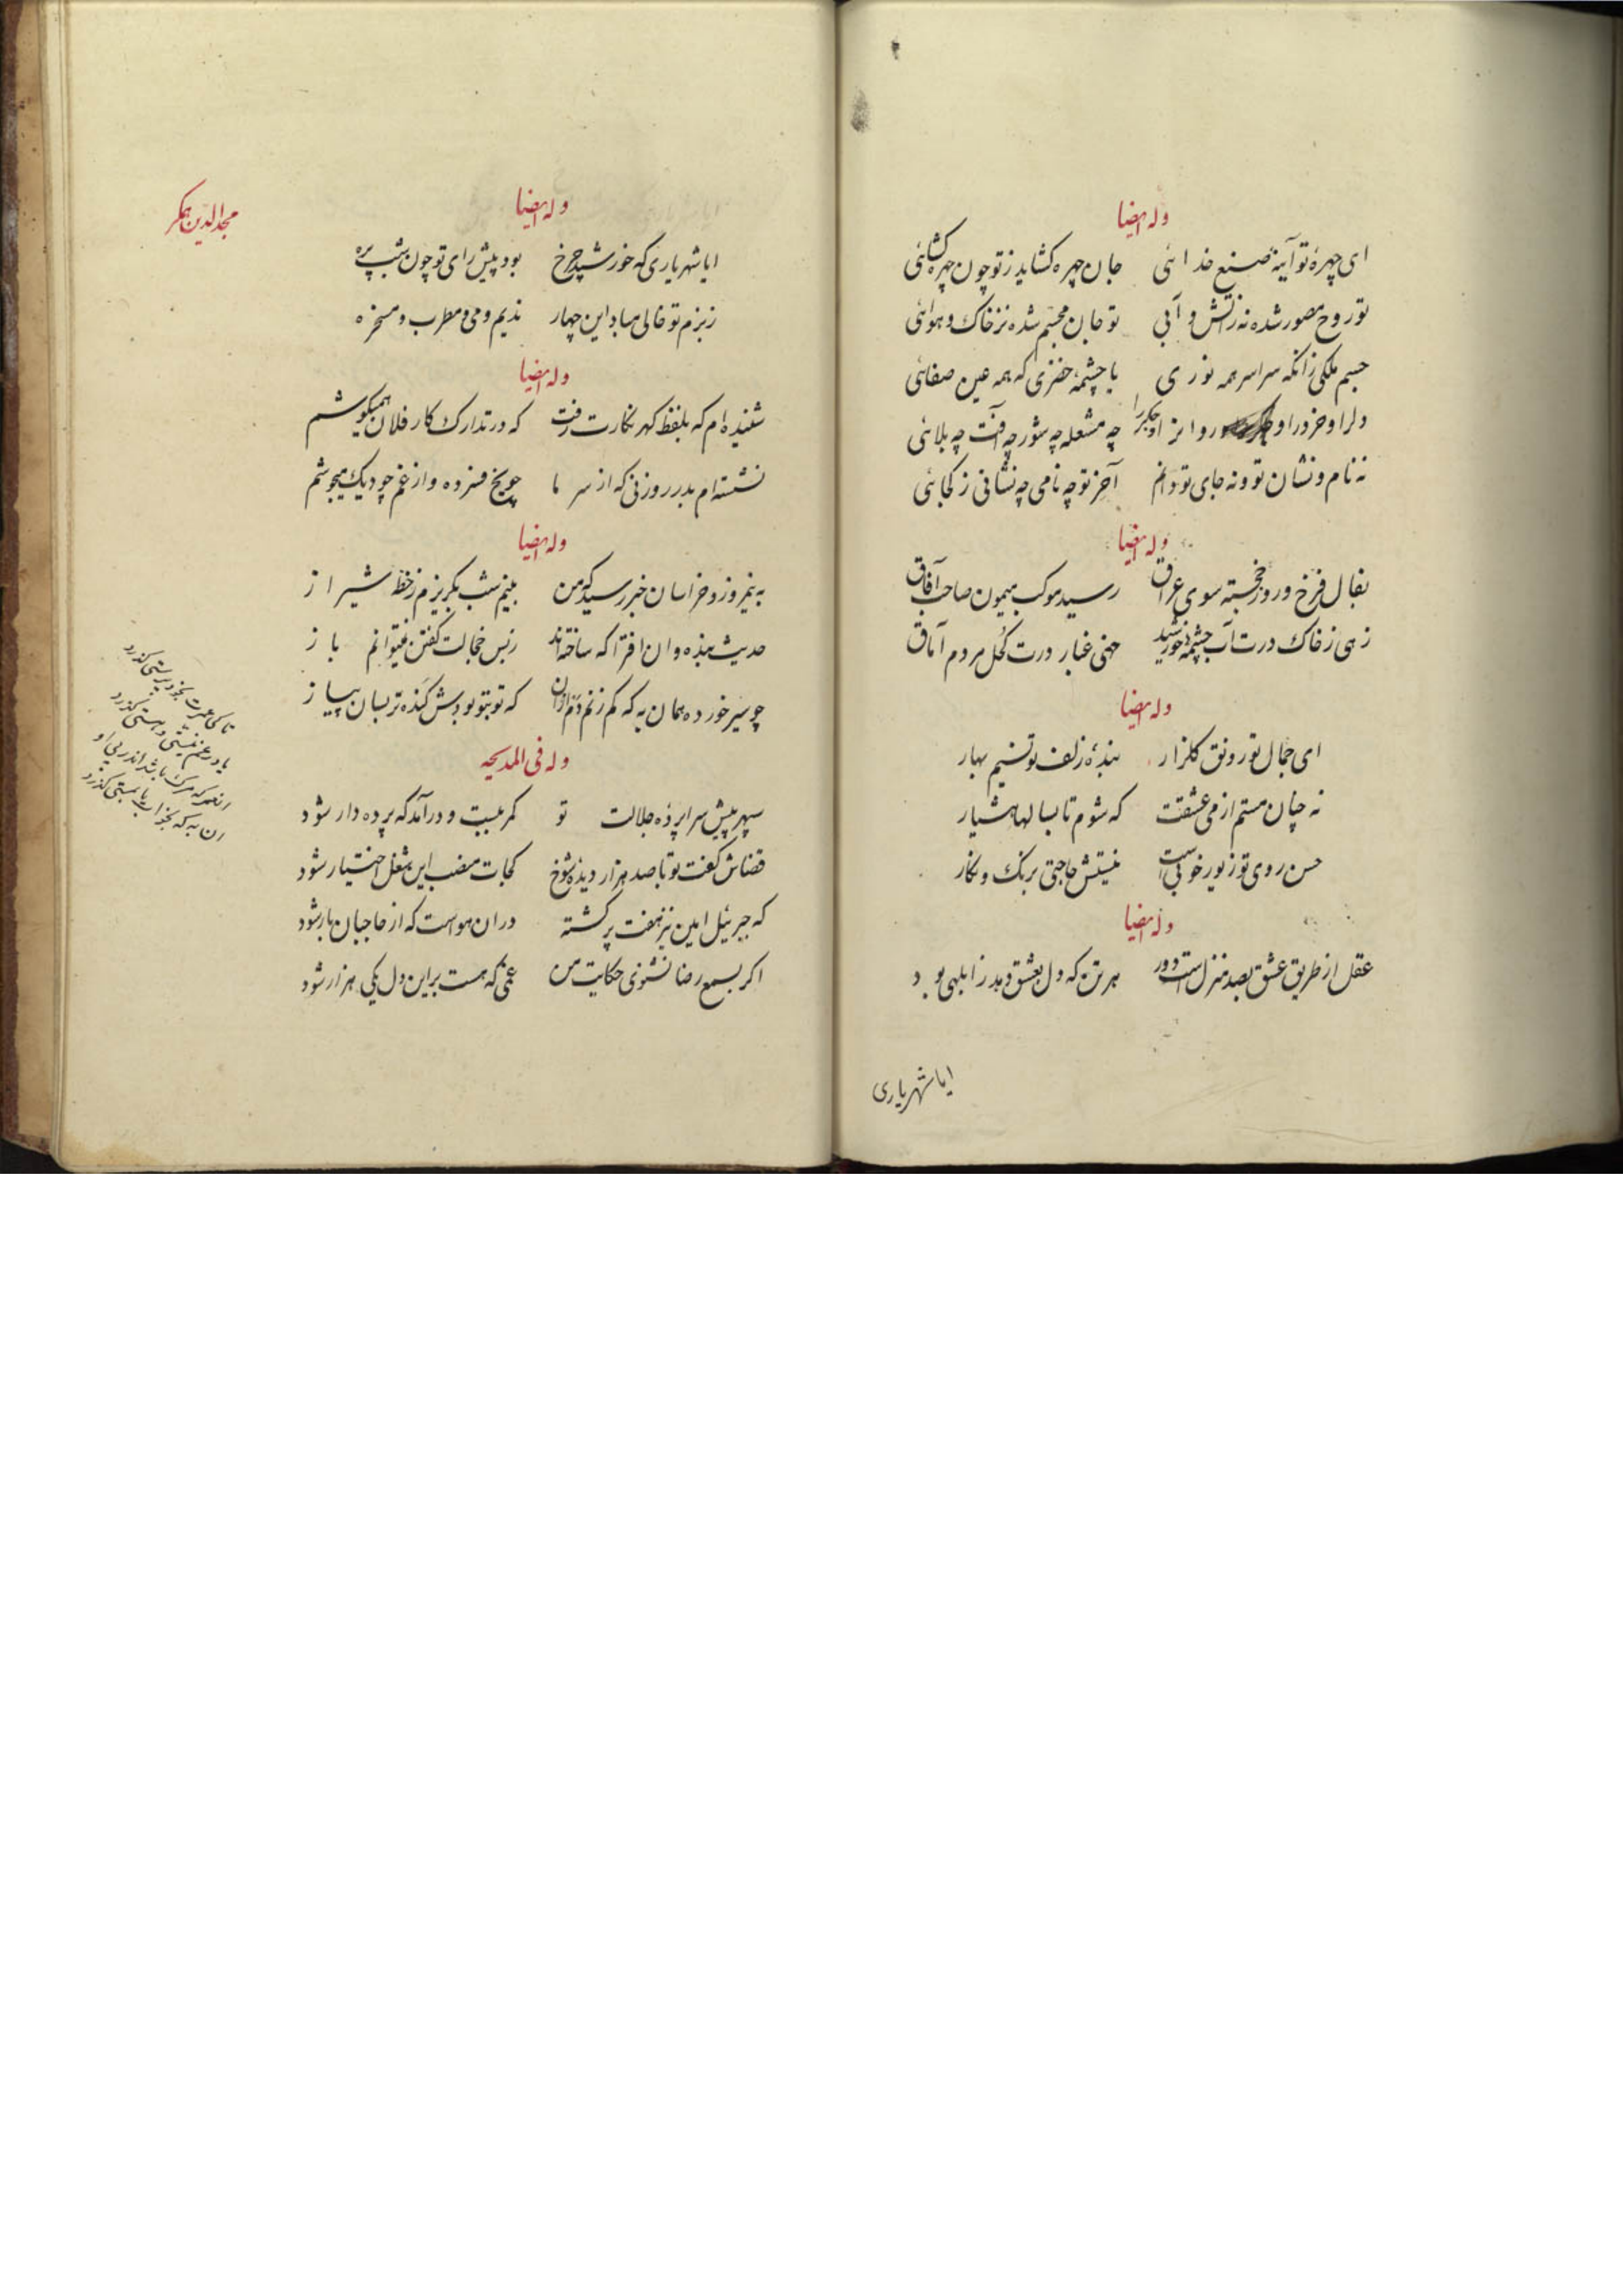 وله ایضا
ای چهرهٔ تو آینهٔ صنع خدائی جان چهره کشاید ز تو چون چهره کشائی
تو روح مصور شده نه زاتش و آبی تو جان مجسم شده نز خاک و هوائی
جسم ملکی زانکه سراسر همه نوری یا چشمهٔ خضری که همه عین صفائی
دلرا و خرد را و روانرا و جکر را چه مشعله چه شور چه آفت چه بلائی
نه نام و نشان تو و نه جای تو دانم آخر تو چه نامی چه نشانی ز کجائی
وله ایضا
بفال فرخ و روز خجسته سوی عراق رسید موکب میمون صاحب آفاق
زهی ز خاک درت آب چشمهٔ خورشید خهی غبار درت کحل مردم آماق
وله ایضا
ای جمال تو رونق کلزار بندهٔ زلف تو نسیم بهار
نه چنان مستم از می عشقت که شوم تا بسالها هشیار
حسن روی تو زیور خوبیست نیستش حاجتی برنک و نکار
وله ایضا
عقل از طریق عشق بصد منزلست دور هر تن که دل بعشق دهد ز ابلهی بود
ایا شهریاری
مجدالدین همکر
وله ایضا
ایا شهریاری که خورشید چرخ بود پیش رای تو چون شب پره
ز بزم تو خالی مباد این چهار ندیم و می و مطرب و مسخره
وله ایضا
شنیده‌ام که بلفظ کهر نکارت رفت که در تدارک کار فلان همیکوشم
نشسته‌ام بدر روزنی که از سرما چو یخ فسرده و از غم چو دیک میجوشم
وله ایضا
به نیمروز و خراسان خبر رسید که من بنیم شب بکریزم ز خطهٔ شیراز
حدیث بنده و ان افترا که ساخته‌اند ز بس خجالت کفتن نمیتوانم باز
چو سیر خورده همان به که کم زنم دم ازان که تو بتو بودش کنده‌تر بسان پیاز
وله فی المدیحه
سپهر پیش سراپردهٔ جلالت تو کمر ببست و درآمد که پرده‌دار شود
قضاش کفت تو با صد هزار دیدهٔ شوخ کجات منصب این شغل اختیار شود
که جبرئیل امین نیز هفت پر کشته در ان هواست که از حاجبان بار شود
اکر بسمع رضا نشنوی حکایت من غمی که هست براین دل یکی هزار شود
تا کی عمرت بخودپرستی کذرد
یا در غم نیستی و هستی کذرد
انعمر که مرک باشد اندر پی او
ان به که بخواب یا بمستی کذرد